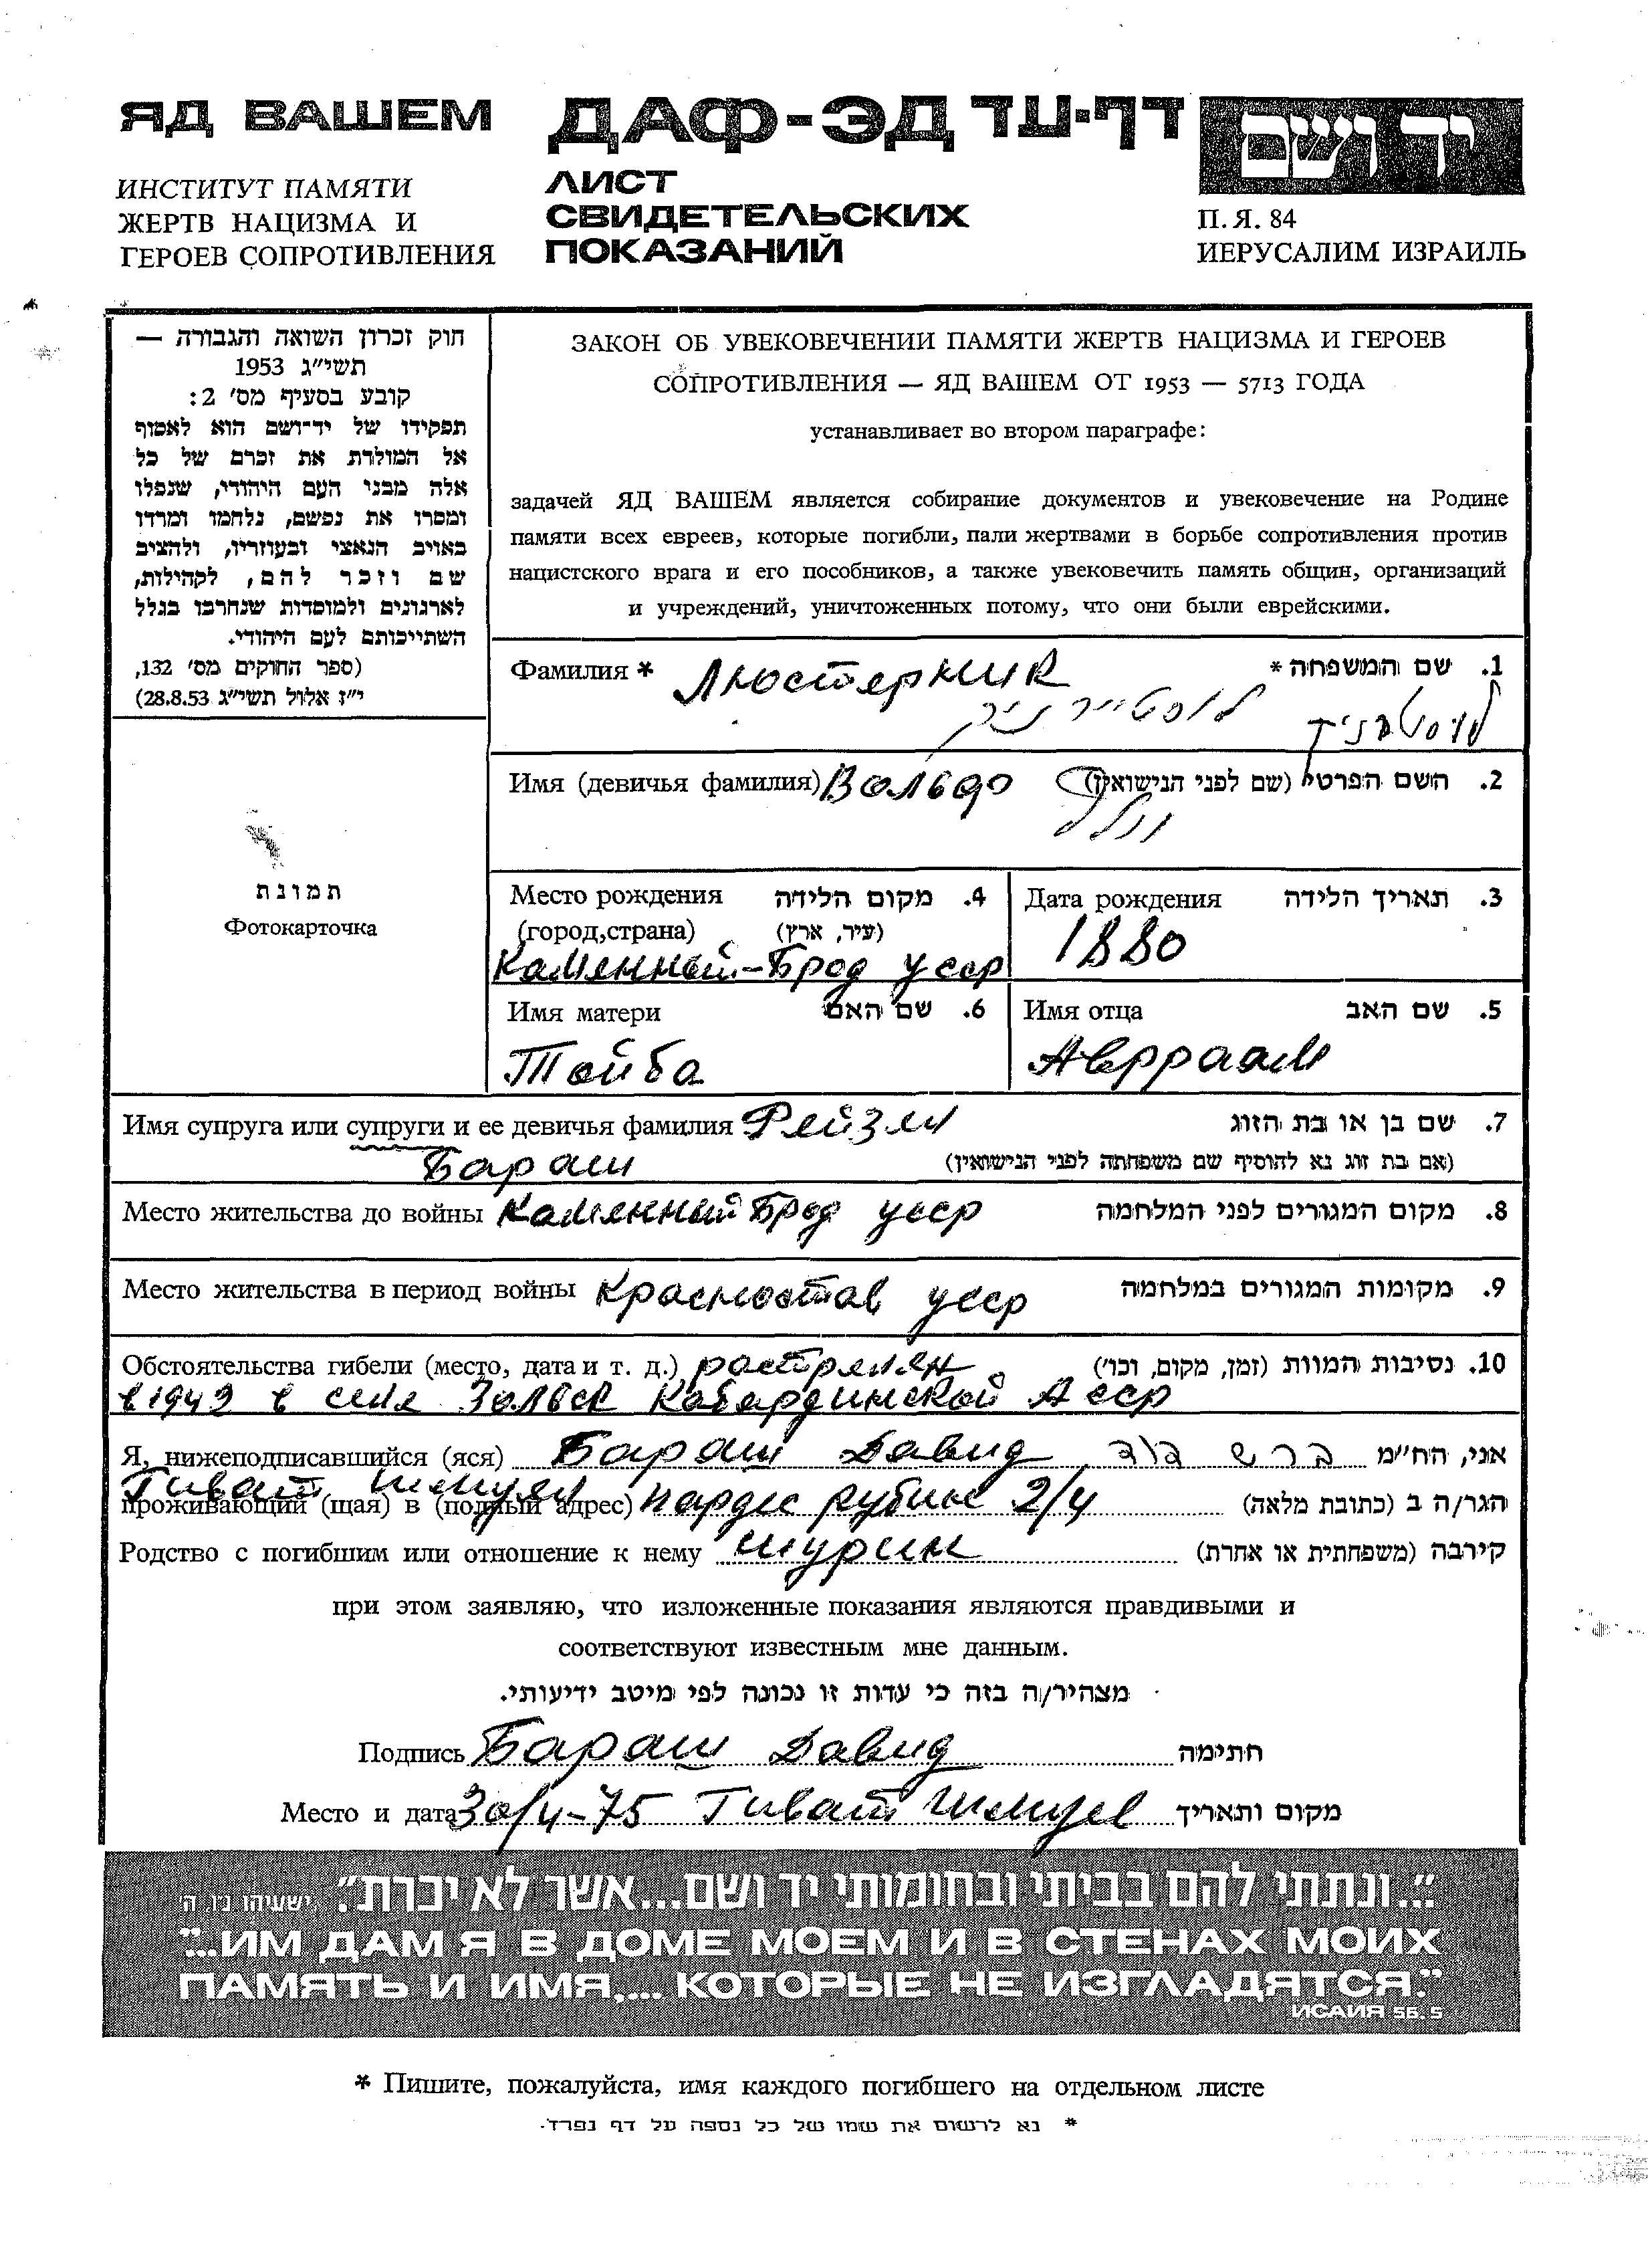 ЯД ВАШЕМ
ИНСТИТУТ ПАМЯТИ
ЖЕРТВ НАЦИЗМА И
ГЕРОЕВ СОПРОТИВЛЕНИЯ
ДАФ-ЭД דף-עד
ЛИСТ
СВИДЕТЕЛЬСКИХ
ПОКАЗАНИЙ
יד ושם
П. Я. 84
ИЕРУСАЛИМ ИЗРАИЛЬ
חוק זכרון השואה והגבורה —
תשי״ג 1953
קובע בסעיף מס׳ 2:
תפקידו של יד־ושם הוא לאסוף
אל המולדת את זכרם של כל
אלה מבני העם היהודי, שנפלו
ומסרו את נפשם, נלחמו ומרדו
באויב הנאצי ובעוזריו, ולהציב
שם וזכר להם, לקהילות,
לארגונים ולמוסדות שנחרבו בגלל
השתייכותם לעם היהודי.
(ספר החוקים מס׳ 132,
י״ז אלול תשי״ג 28.8.53)
תמונת
Фотокарточка
ЗАКОН ОБ УВЕКОВЕЧЕНИИ ПАМЯТИ ЖЕРТВ НАЦИЗМА И ГЕРОЕВ
СОПРОТИВЛЕНИЯ — ЯД ВАШЕМ ОТ 1953 — 5713 ГОДА
устанавливает во втором параграфе:
задачей ЯД ВАШЕМ является собирание документов и увековечение на Родине
памяти всех евреев, которые погибли, пали жертвами в борьбе сопротивления против
нацистского врага и его пособников, а также увековечить память общин, организаций
и учреждений, уничтоженных потому, что они были еврейскими.
Фамилия * Люстерник 1. שם המשפחה *
לוסטיירניק לוסטרניק
Имя (девичья фамилия) Вольф 2. השם הפרטי (שם לפני הנישואין)
וולף
Место рождения 4. מקום הלידה
(город,страна) (עיר, ארץ)
Каменный-Брод усср
Дата рождения 3. תאריך הלידה
1880
Имя матери 6. שם האם
Тойба
Имя отца 5. שם האב
Аврраам
Имя супруга или супруги и ее девичья фамилия Рейзел 7. שם בן או בת הזוג
Бараш (אם בת זוג נא להוסיף שם משפחתה לפני הנישואין)
Место жительства до войны Каменный Брод усср 8. מקום המגורים לפני המלחמה
Место жительства в период войны Красностав усср 9. מקומות המגורים במלחמה
Обстоятельства гибели (место, дата и т. д.) растрелян 10. נסיבות המוות (זמן, מקום, וכו׳)
в 1942 в селе Зольск Кабардинской Асср
Я, нижеподписавшийся (яся) Бараш Давид ברש דוד אני, הח״מ
Гиват Шмуел
проживающий (щая) в (полный адрес) пардес рубин 2/4 הגר/ה ב (כתובת מלאה)
Родство с погибшим или отношение к нему шурин קירבה (משפחתית או אחרת)
при этом заявляю, что изложенные показания являются правдивыми и
соответствуют известным мне данным.
מצהיר/ה בזה כי עדות זו נכונה לפי מיטב ידיעותי.
Подпись Бараш Давид חתימה
Место и дата 30/4-75 Гиват Шмуел מקום ותאריך
״...ונתתי להם בביתי ובחומותי יד ושם...אשר לא יכרת״. ישעיהו נ״ו ה׳
"...ИМ ДАМ Я В ДОМЕ МОЕМ И В СТЕНАХ МОИХ
ПАМЯТЬ И ИМЯ,... КОТОРЫЕ НЕ ИЗГЛАДЯТСЯ."
ИСАИЯ 56. 5
* Пишите, пожалуйста, имя каждого погибшего на отдельном листе
* נא לרשום את שמו של כל נספה על דף נפרד.